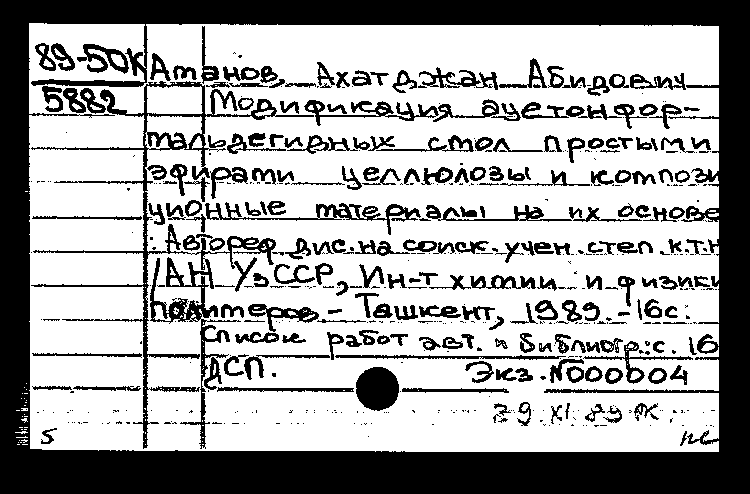 89-50К Атанов, Ахатджан Абидович
5882 Модификация ацетонфор-
мальдегидных смол простыми
эфирами целлюлозы и компози
ционные материалы на их основе
: Автореф. дис. на соиск. учен. степ. к.т.н
/АН УзССР, Ин-т химии и физики
полимеров. - Ташкент, 1989. - 16с.
Список работ авт. и библиогр.: с. 16
ДСП. Экз. №000004
29. XI. 89
5